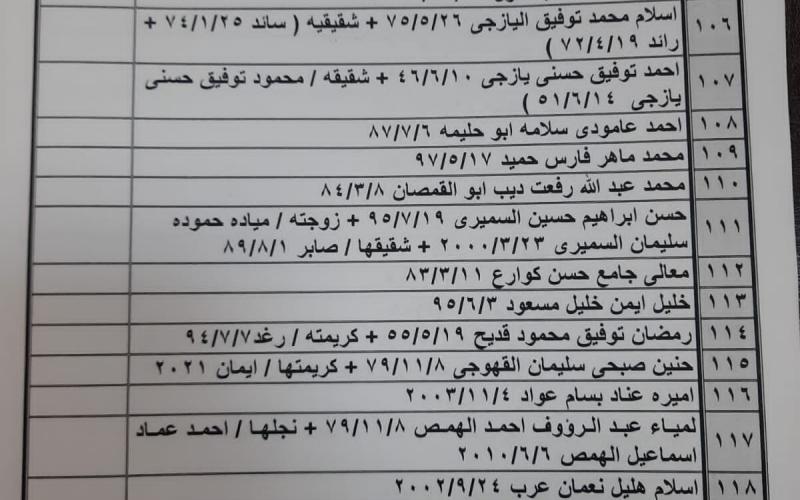 ١٠٦ اسلام محمد توفيق اليازجى ٧٥/٥/٢٦ + شقيقيه ( سائد ٧٤/١/٢٥ +
رائد ٧٢/٤/١٩ )
١٠٧ احمد توفيق حسنى يازجى ٤٦/٦/١٠ + شقيقه / محمود توفيق حسنى
يازجى ٥١/٦/١٤ )
١٠٨ احمد عامودى سلامه ابو حليمه ٨٧/٧/٦
١٠٩ محمد ماهر فارس حميد ٩٧/٥/١٧
١١٠ محمد عبد الله رفعت ديب ابو القمصان ٨٤/٣/٨
١١١ حسن ابراهيم حسين السميرى ٩٥/٧/١٩ + زوجته / مياده حموده
سليمان السميرى ٢٠٠٠/٣/٢٣ + شقيقها / صابر ٨٩/٨/١
١١٢ معالى جامع حسن كوارع ٨٣/٣/١١
١١٣ خليل ايمن خليل مسعود ٩٥/٦/٣
١١٤ رمضان توفيق محمود قديح ٥٥/٥/١٩ + كريمته / رغد٩٤/٧/٧
١١٥ حنين صبحى سليمان القهوجى ٧٩/١١/٨ + كريمتها / ايمان ٢٠٢١
١١٦ اميره عناد بسام عواد ٢٠٠٣/١١/٤
١١٧ لمياء عبد الرؤوف احمد الهمص ٧٩/١١/٨ + نجلها / احمد عماد
اسماعيل الهمص ٢٠١٠/٦/٦
١١٨ اسلام هليل نعمان عرب ٢٠٠٢/٩/٢٤